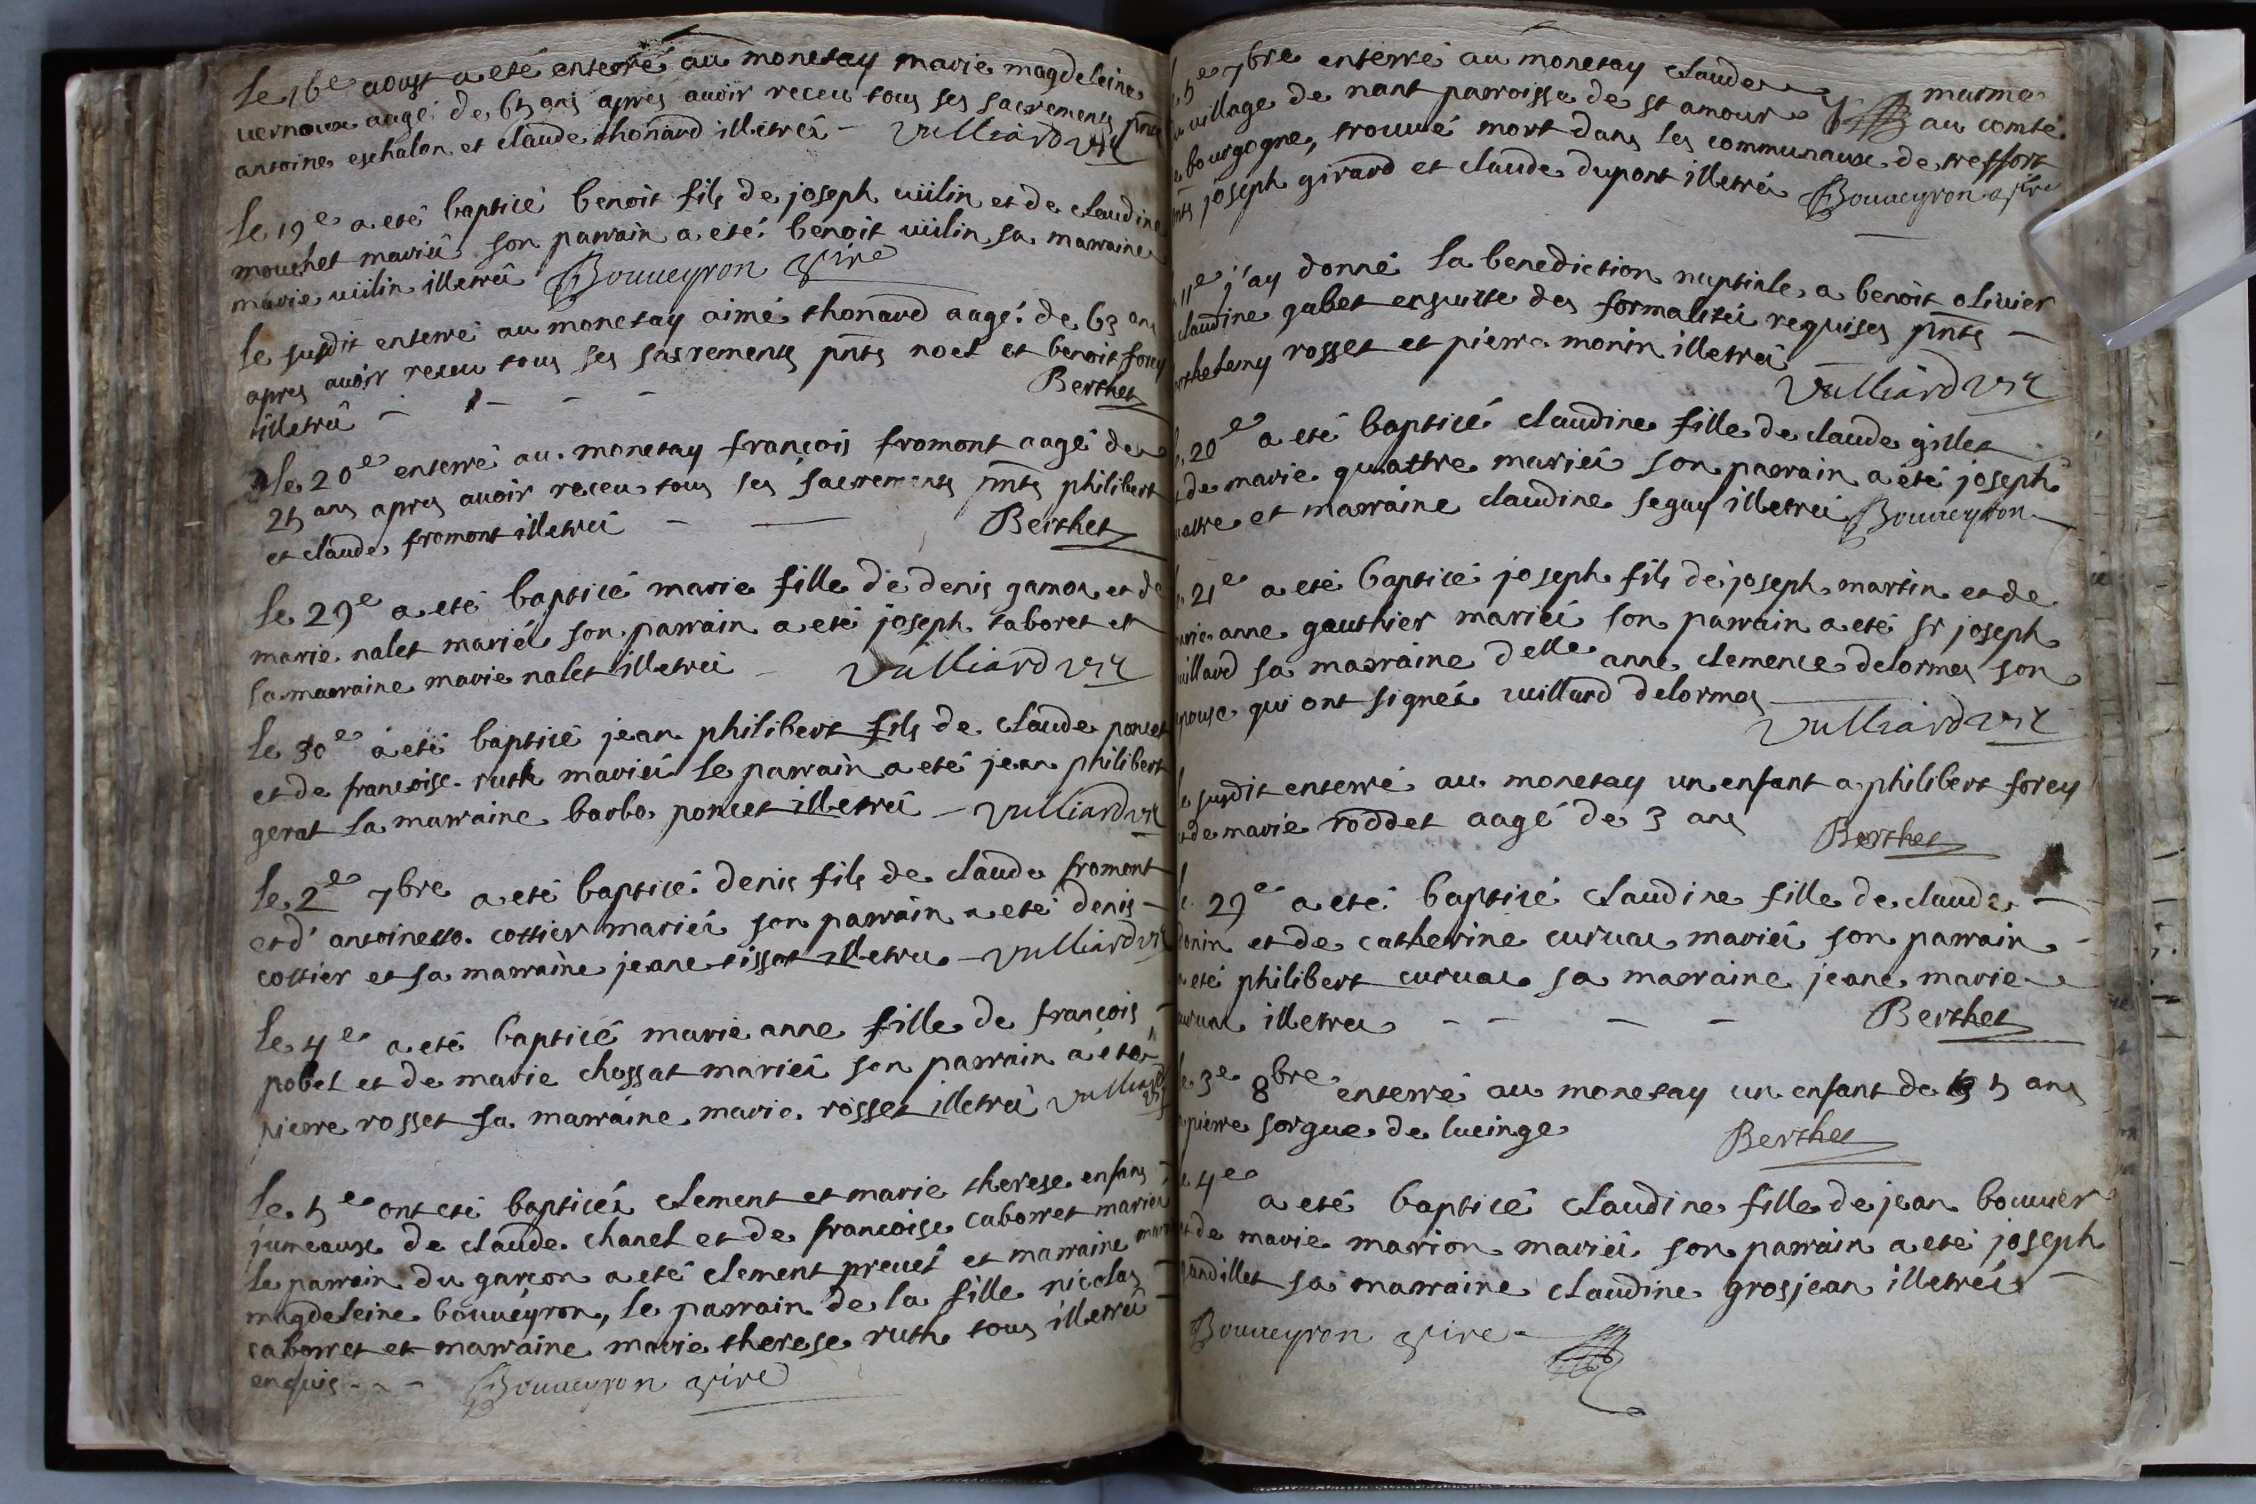 le 16e aoust a eté enterré au monetay marie magdeleine
vernoux aagé de 65 ans apres avoir receu tous ses sacrements pnts
antoine eschalon et claude thonard illetréz Vulliard vire
le 19e a eté bapticé benoit fils de joseph viilin et de claudine
mouchet mariéz son parrain a eté benoit viilin sa marraine
marie viilin illetréz Bouveyron vire
le susdit enterré au monetay aimé thonard aagé de 63 ans
apres avoir receu tous ses sacrements pnts noel et benoit forey
illetréz Berthet
le 20e enterré au monetay françois fromont aagé de
25 ans apres avoir receu tous ses sacrements pnts philibert
et claude fromont illetréz Berthet
le 29e a eté bapticé marie fille de denis gamon et de
marie nalet mariéz son parrain a eté joseph taboret et
sa marraine marie nalet illetréz Vulliard vire
le 30e a eté bapticé jean philibert fils de claude poncet
et de françoise ruth mariéz le parrain a eté jean philibert
gerat la marraine barbe poncet illetréz Vulliard vire
le 2e 7bre a eté bapticé denis fils de claude fromont
et d'antoinette cottier mariéz son parrain a eté denis
cottier et sa marraine jeane tissot illetréz Vulliard vire
le 4e a eté bapticé marie anne fille de françois
pobel et de marie chossat mariéz son parrain a eté
pierre rosset sa marraine marie rosset illetréz Vulliard vire
le 5e ont eté bapticéz clement et marie therese enfans
jumeaux de claude chanel et de françoise caborret mariéz
le parrain du garçon a eté clement prevel et marraine marie
magdeleine bouveyron, le parrain de la fille nicolas
caborret et marraine marie therese ruth tous illetréz
enquis Bouveyron vire
5e 7bre enterré au monetay claude marme
du village de nant parroisse de st amour au comté
de bourgogne, trouvé mort dans les communaux de treffort
pnts joseph girard et claude dupont illetréz Bouveyron vire
11e j'ay donné la benediction nuptiale a benoit olivier
claudine gabet ensuitte des formalitéz requises pnts
barthelemy rosset et pierre monin illetréz
Vulliard vire
20e a eté bapticé claudine fille de claude gillet
et de marie quattre mariéz son parrain a eté joseph
quattre et marraine claudine seguy illetréz Bouveyron
21e a eté bapticé joseph fils de joseph martin et de
marie anne gauthier mariéz son parrain a eté sr joseph
vuillard sa marraine delle anne clemence delormes son
epouse qui ont signéz vuillard delormes
Vulliard vire
le susdit enterré au monetay un enfant a philibert forey
et de marie roddet aagé de 3 ans Berthet
le 29e a eté bapticé claudine fille de claude
et de catherine curvac mariéz son parrain
a eté philibert curvac sa marraine jeane marie
curvac illetréz Berthet
le 3e 8bre enterré au monetay un enfant de 5 ans
a pierre sorgue de lucinge Berthet
le 4e a eté bapticé claudine fille de jean bouvier
et de marie marion mariéz son parrain a eté joseph
gandillet sa marraine claudine grosjean illetréz
Bouveyron vire